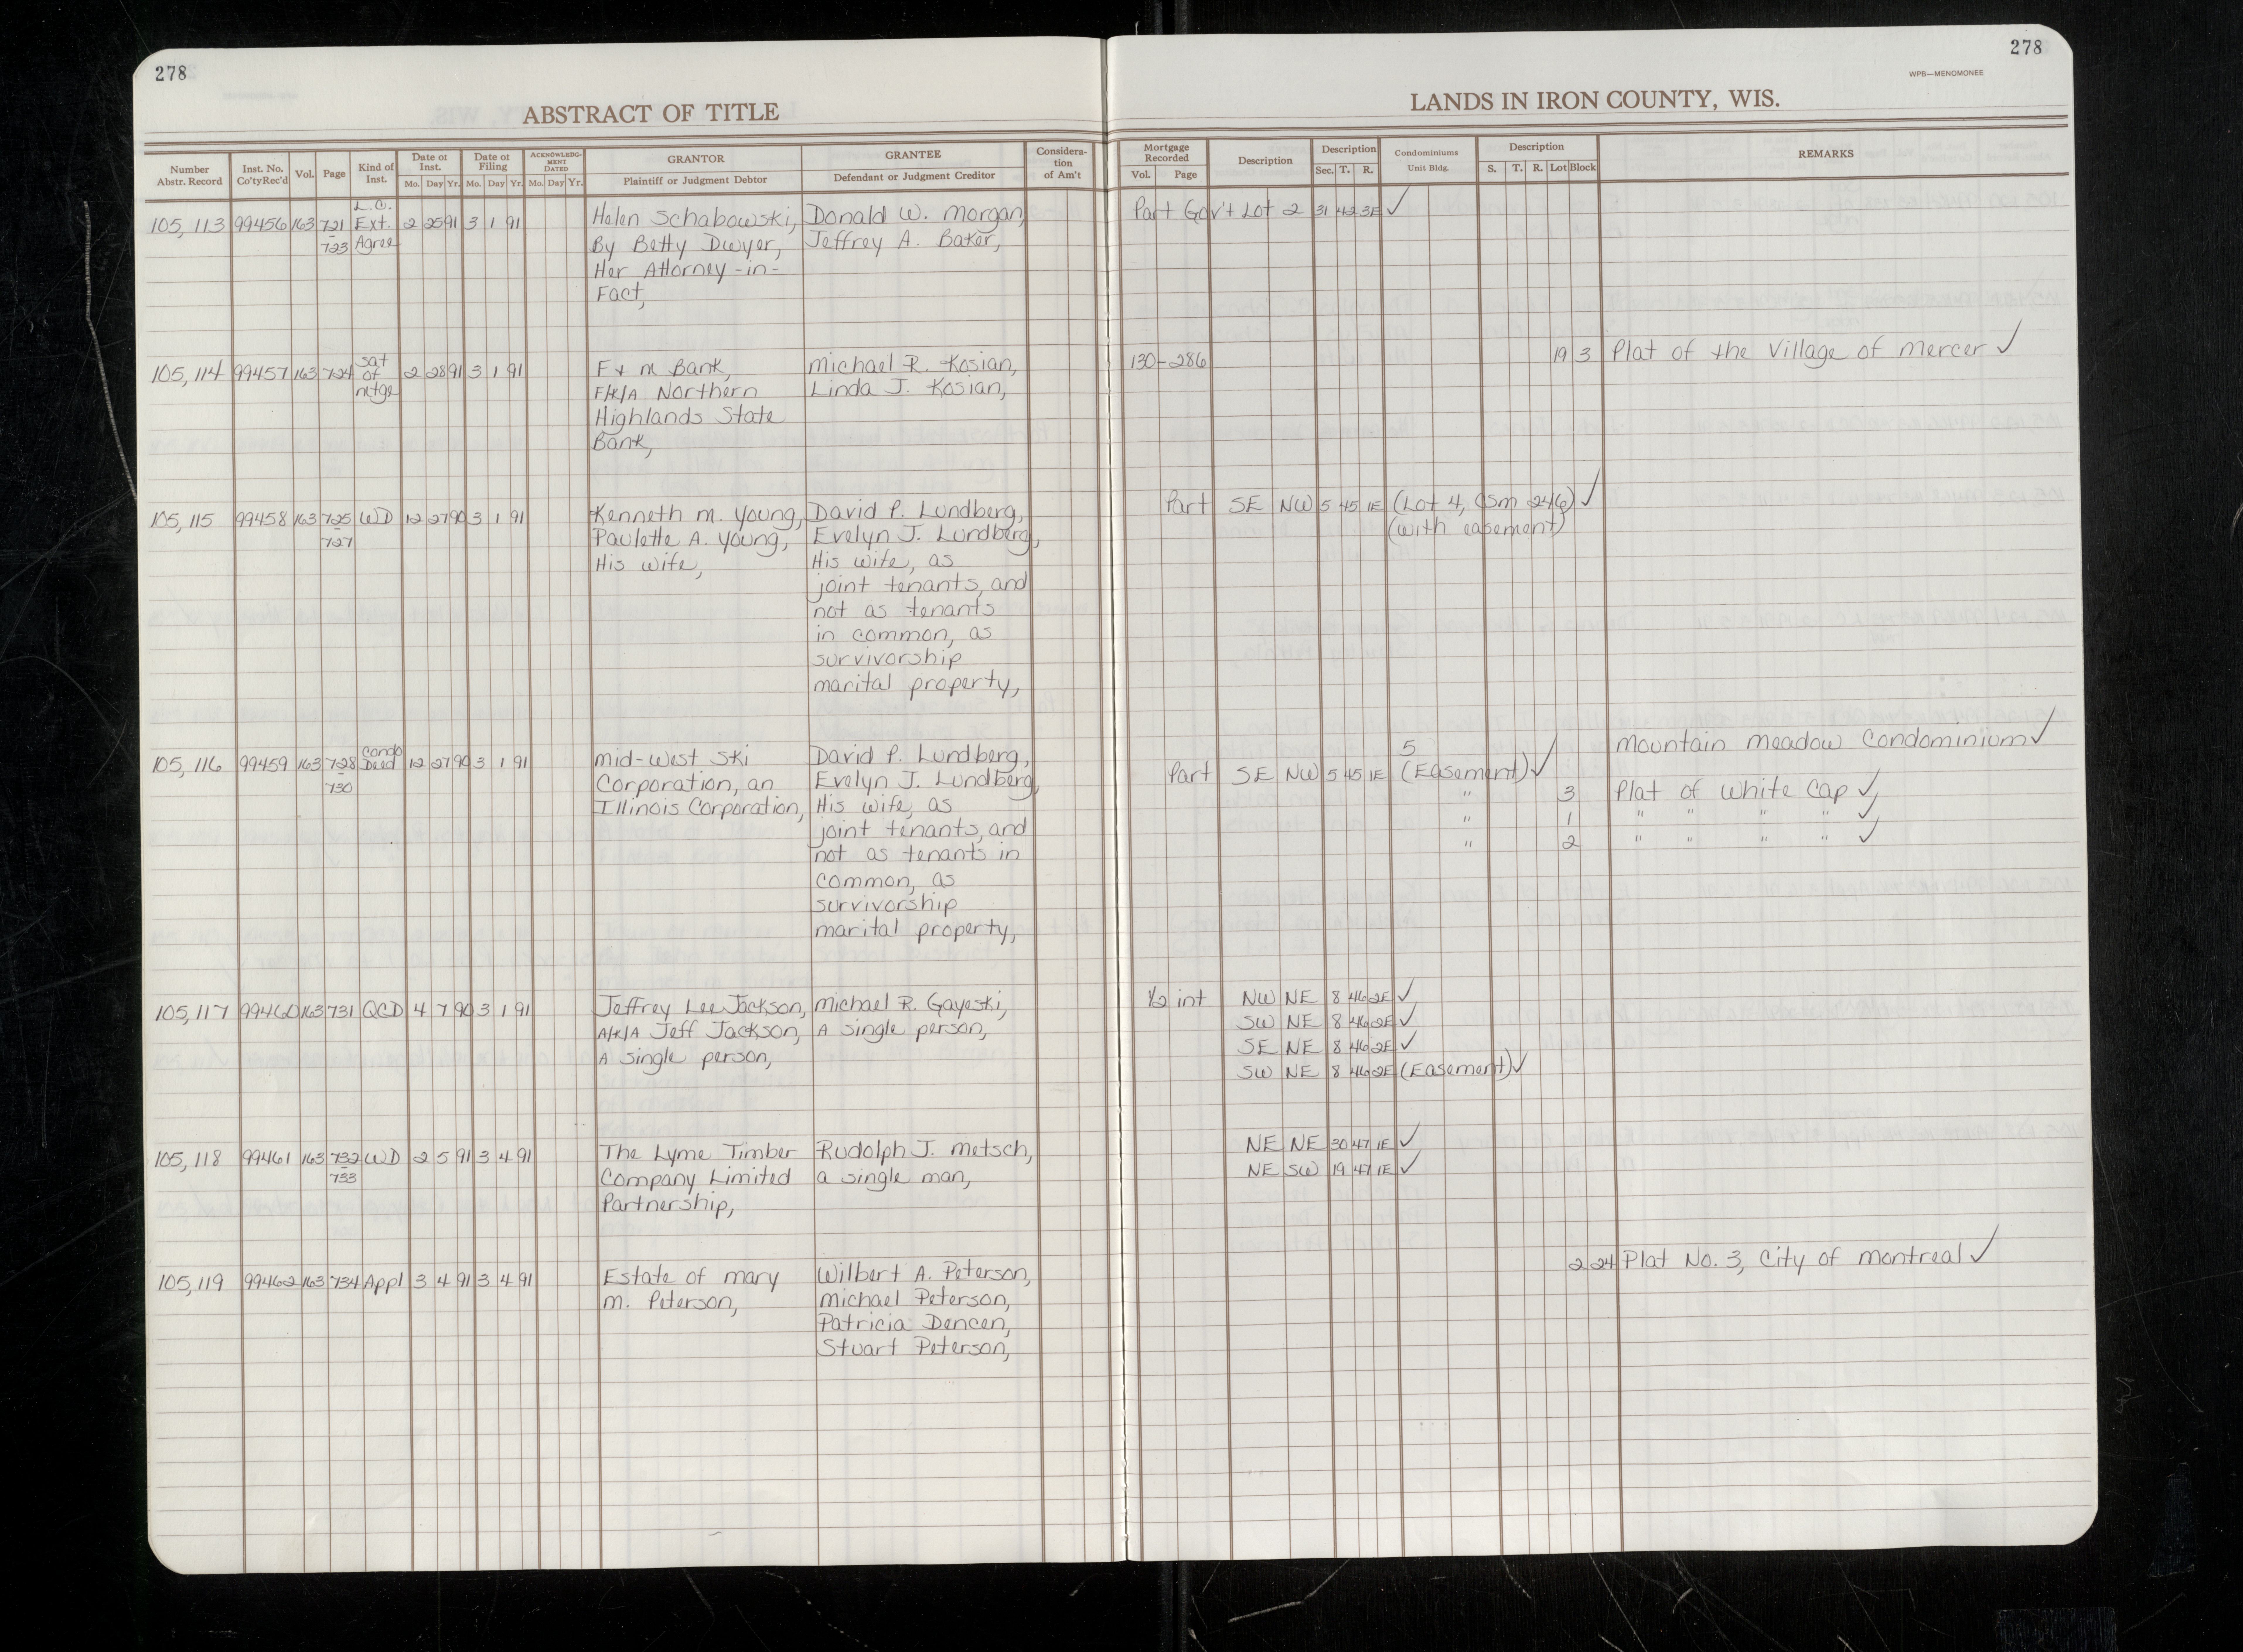 278
278
WPB—MENOMONEE
ABSTRACT OF TITLE
LANDS IN IRON COUNTY, WIS.
Number Abstr. Record | Inst. No. Co'ty Rec'd | Vol. | Page | Kind of Inst. | Date of Inst. Mo. Day Yr. | Date of Filing Mo. Day Yr. | ACKNOWLEDGMENT DATED Mo. Day Yr. | GRANTOR Plaintiff or Judgment Debtor | GRANTEE Defendant or Judgment Creditor | Consideration of Am't | Mortgage Recorded Vol. Page | Description | Description Sec. T. R. | Condominiums Unit Bldg. | Description S. T. R. Lot Block | REMARKS
L.C.
105,113 99456 163 721 Ext. 2 25 91 3 1 91 Helen Schabowski, Donald W. Morgan, Part Gov't Lot 2 31 42 3E ✓
723 Agree By Betty Dwyer, Jeffrey A. Baker,
Her Attorney-in-
Fact,
105,114 99457 163 724 Sat of mtge 2 28 91 3 1 91 F + M Bank, Michael R. Kosian, 130-286 19 3 Plat of the Village of Mercer ✓
F/K/A Northern Linda J. Kosian,
Highlands State
Bank,
105,115 99458 163 725 WD 12 27 90 3 1 91 Kenneth M. Young, David P. Lundberg, Part SE NW 5 45 1E (Lot 4, CSM 246) ✓
727 Paulette A. Young, Evelyn J. Lundberg, (with easement)
His wife, His wife, as
joint tenants, and
not as tenants
in common, as
survivorship
marital property,
105,116 99459 163 728 Condo Deed 12 27 90 3 1 91 Mid-West Ski David P. Lundberg, 5 Mountain Meadow Condominium ✓
730 Corporation, an Evelyn J. Lundberg, Part SE NW 5 45 1E (Easement) ✓
Illinois Corporation, His wife, as " 3 Plat of White Cap ✓
joint tenants, and " 1 " " " " ✓
not as tenants in " 2 " " " " ✓
common, as
survivorship
marital property,
105,117 99460 163 731 QCD 4 7 90 3 1 91 Jeffrey Lee Jackson, Michael R. Gayeski, 1/2 int NW NE 8 46 2E ✓
A/K/A Jeff Jackson, A single person, SW NE 8 46 2E ✓
A single person, SE NE 8 46 2E ✓
SW NE 8 46 2E (Easement) ✓
105,118 99461 163 732 WD 2 5 91 3 4 91 The Lyme Timber Rudolph J. Metsch, NE NE 30 47 1E ✓
733 Company Limited a single man, NE SW 19 47 1E ✓
Partnership,
105,119 99462 163 734 Appl 3 4 91 3 4 91 Estate of Mary Wilbert A. Peterson, 2 24 Plat No. 3, City of Montreal ✓
M. Peterson, Michael Peterson,
Patricia Dencen,
Stuart Peterson,